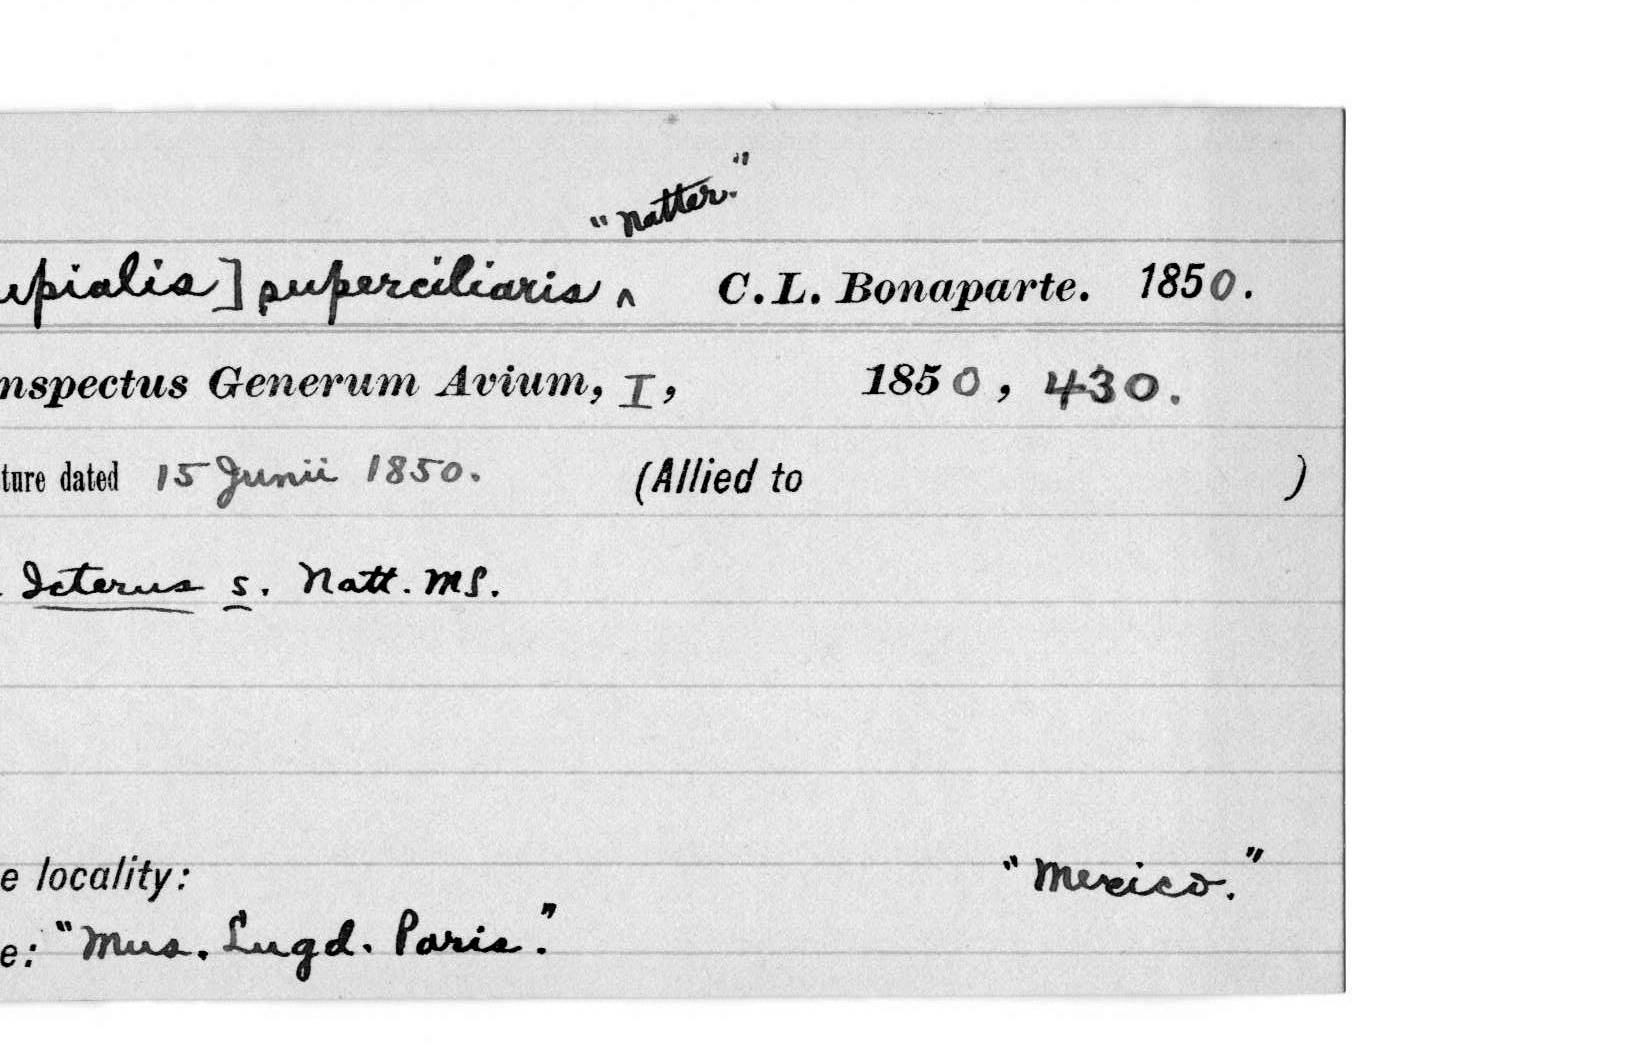 "Natter."
upialis] superciliaris ^ C.L. Bonaparte. 1850.
nspectus Generum Avium, I, 1850, 430.
ture dated 15 Junii 1850. (Allied to )
. Icterus s. Natt. MS.
e locality: "Mexico."
e: "Mus. Lugd. Paris."